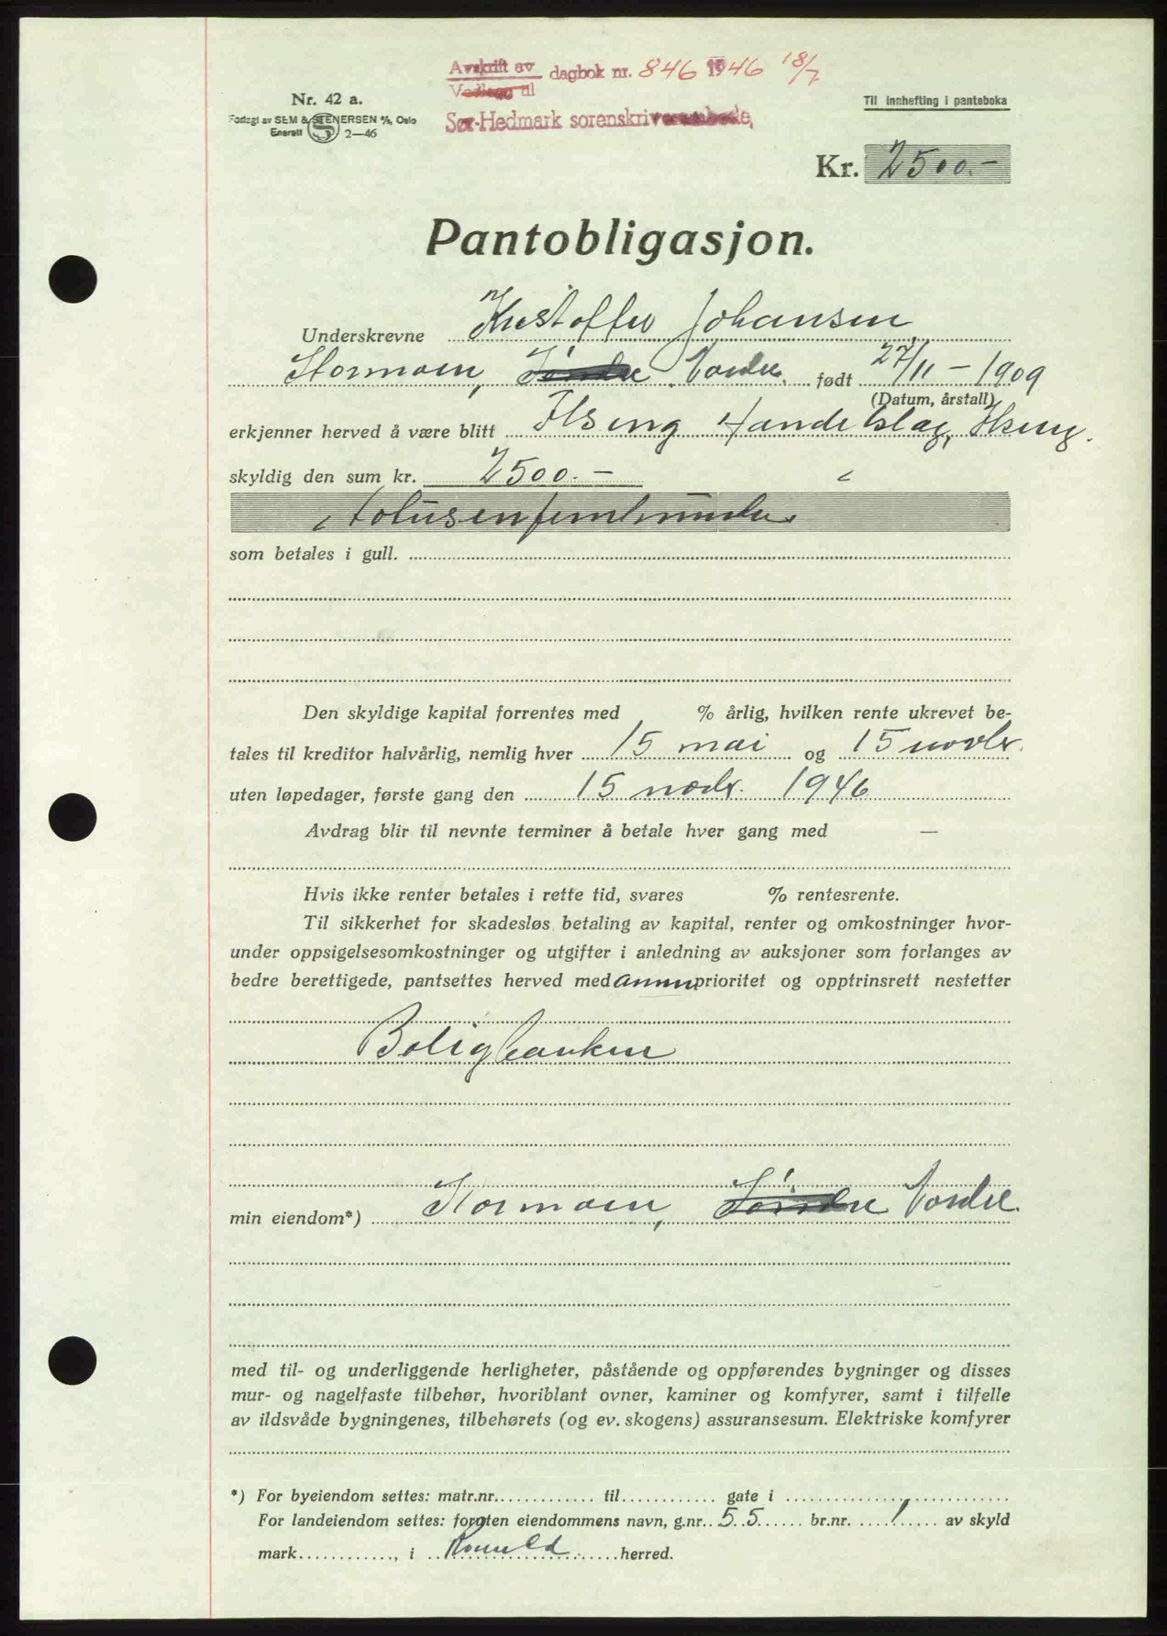 Avskrift av dagbok nr. 846 1946 18/7
Vedlegg til
Sør-Hedmark sorenskriverembede,
Nr. 42 a.
Forlagt av SEM & STENERSEN A/S, Oslo
Enerett S 2—46
Til innhefting i panteboka
Kr. 2500.-
Pantobligasjon.
Underskrevne Kristoffer Johansen
Stormoen, Vordre. født 27/11 - 1909
(Datum, årstall)
erkjenner herved å være blitt Ilseng Handelslag, Ilseng.
skyldig den sum kr. 2500.-
Totusenfemhundre
som betales i gull.
Den skyldige kapital forrentes med % årlig, hvilken rente ukrevet be-
tales til kreditor halvårlig, nemlig hver 15 mai og 15 novbr.
uten løpedager, første gang den 15 novbr. 1946
Avdrag blir til nevnte terminer å betale hver gang med —
Hvis ikke renter betales i rette tid, svares % rentesrente.
Til sikkerhet for skadesløs betaling av kapital, renter og omkostninger hvor-
under oppsigelsesomkostninger og utgifter i anledning av auksjoner som forlanges av
bedre berettigede, pantsettes herved med annen prioritet og opptrinsrett nestetter
Boligbanken
min eiendom*) Stormoen, Vordre.
med til- og underliggende herligheter, påstående og oppførendes bygninger og disses
mur- og nagelfaste tilbehør, hvoriblant ovner, kaminer og komfyrer, samt i tilfelle
av ildsvåde bygningenes, tilbehørets (og ev. skogens) assuransesum. Elektriske komfyrer
*) For byeiendom settes: matr.nr. til gate i
For landeiendom settes: foruten eiendommens navn, g.nr. 55 br.nr. 1 av skyld
mark , i Romedal herred.